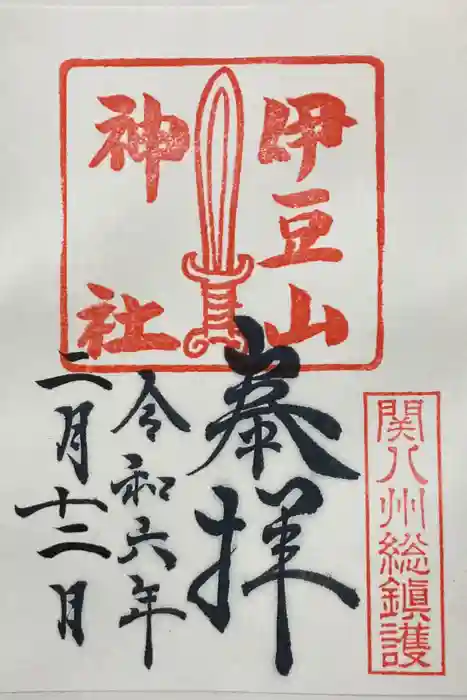 伊豆山
神社
関八州総鎮護
奉拝
令和六年
二月十二月